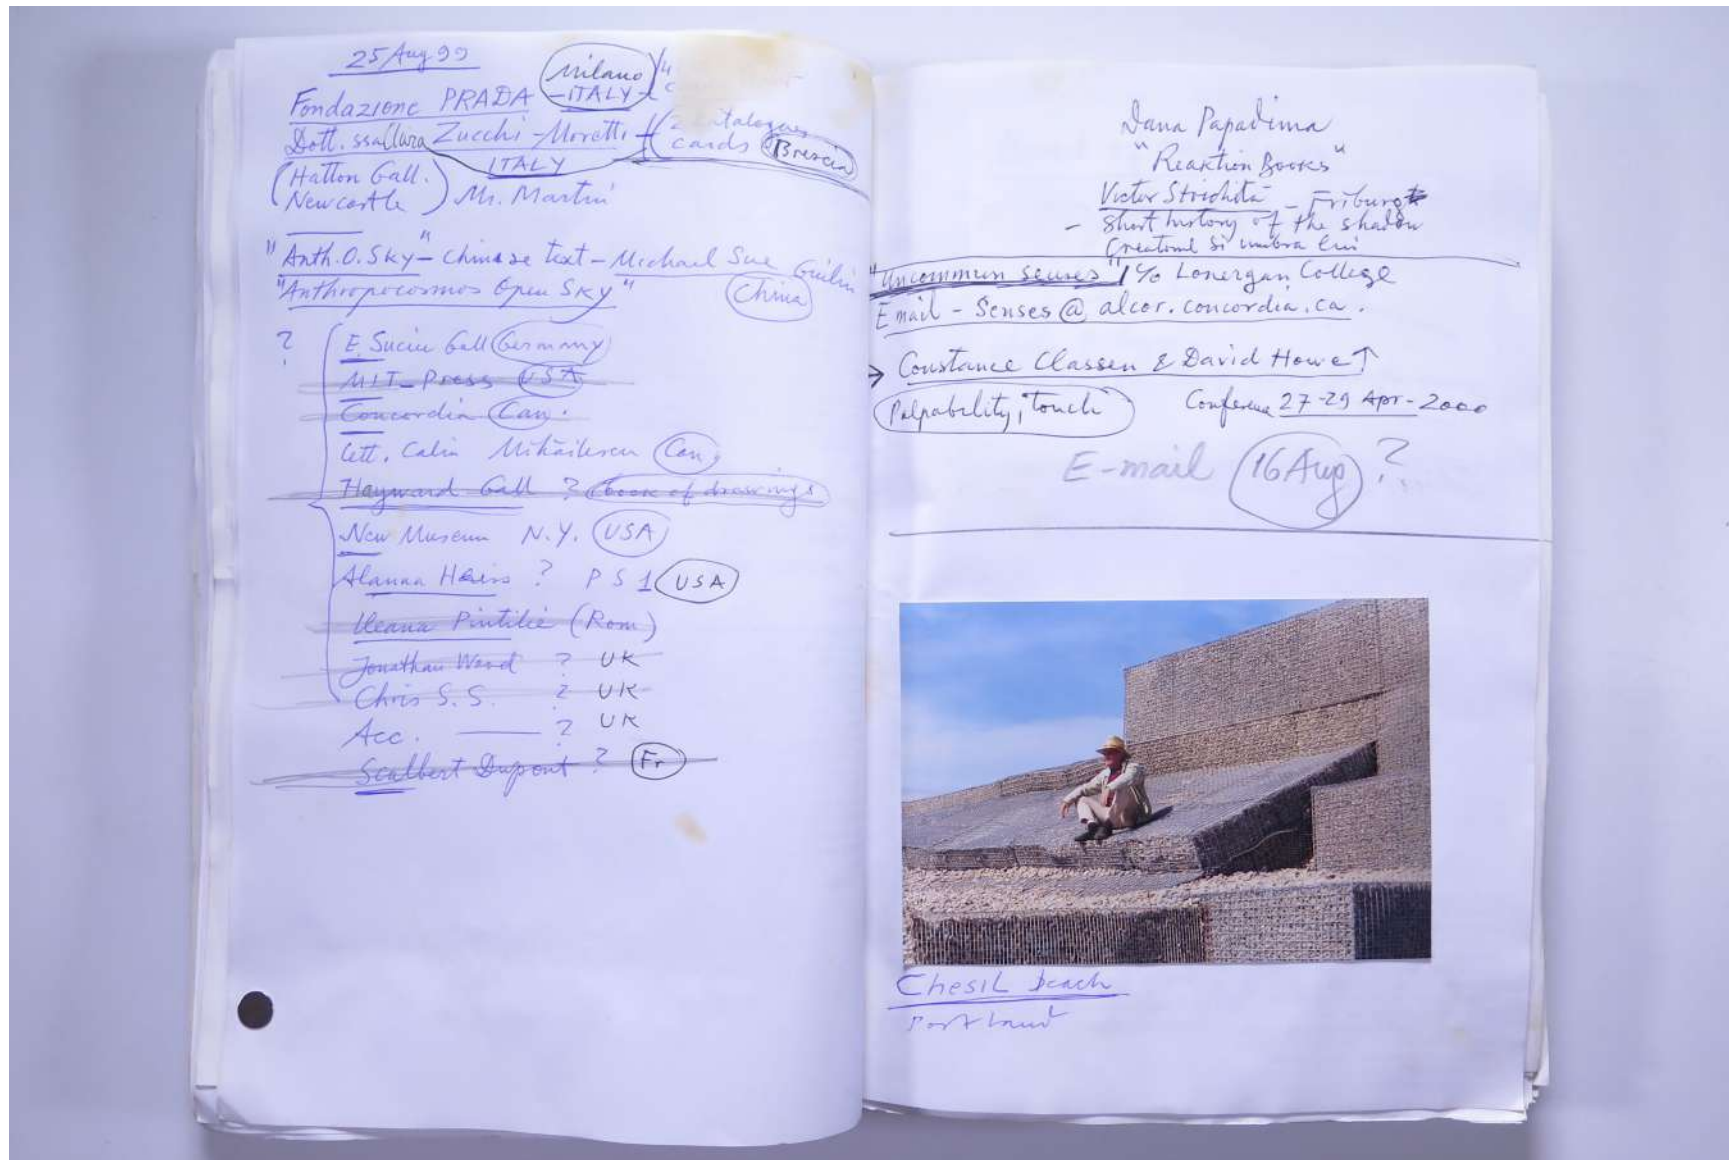 25 Aug 99
Milano
Fondazione PRADA - ITALY -
Dott. ssa Zucchi - Moretti catalogues
cards Brescia
ITALY
(Hatton Gall.
Newcastle) Mr. Martin
"Anth. O. Sky" - Chinese text - Michael Sue Guilin
"Anthropocosmos Open Sky" China
? E. Suciu Gall Germany
MIT - Press USA
Concordia Can.
Calin Mihăilescu Can.
Hayward Gall ? book of drawings
New Museum N.Y. USA
Alanna Heiss ? P S 1 USA
Ileana Pintilie (Rom)
Jonathan Ward ? UK
Chris S. S. ? UK
Acc. — ? UK
Scalbert Dupont ? Fr
Dana Papadima
"Reaktion Books"
Victor Stoichita - Friburg
- Short history of the shadow
si umbra lui
"Uncommun senses" 1 c/o Lonergan College
Email - Senses @ alcor.concordia.ca.
→ Constance Classen & David Howe ↑
Palpability, touch Conference 27-29 Apr - 2000
E-mail 16 Aug ?
Chesil beach
Portland